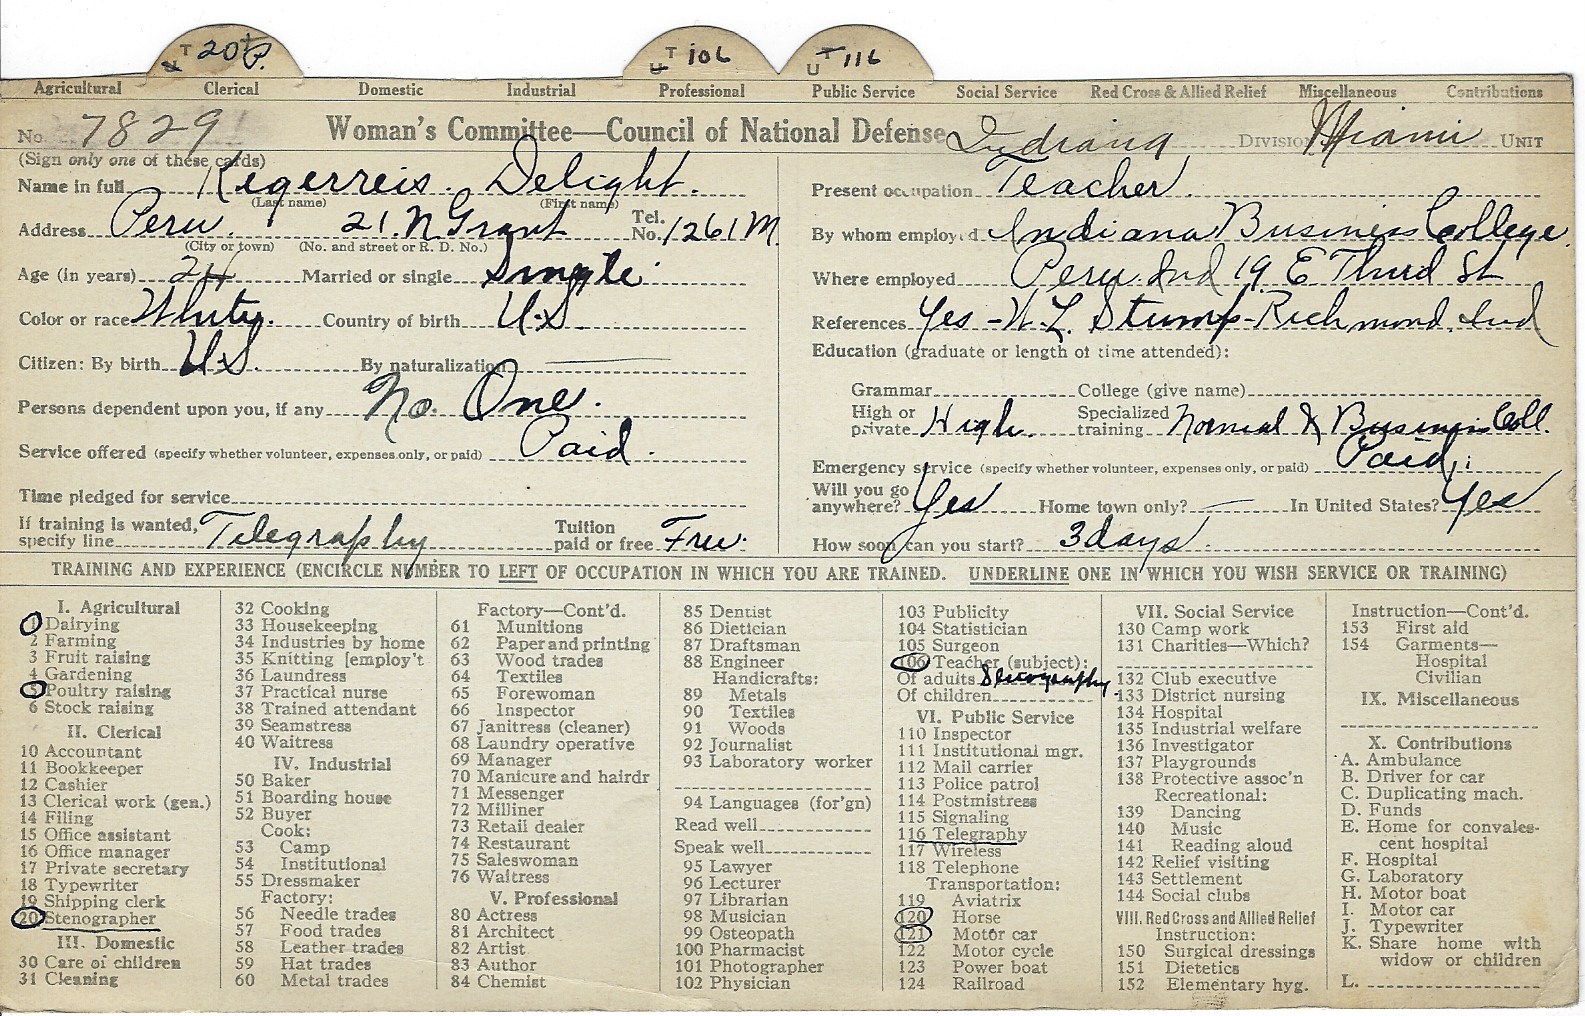 T 20 P.
U T 106
U T 116
Agricultural Clerical Domestic Industrial Professional Public Service Social Service Red Cross & Allied Relief Miscellaneous Contributions
No. 7829 Woman's Committee—Council of National Defense Indiana Division Miami Unit
(Sign only one of these cards)
Name in full Kegerreis Delight.
(Last name) (First name)
Address Peru. 21. N Grant Tel. No. 1261 M
(City or town) (No. and street or R. D. No.)
Age (in years) 24 Married or single Single.
Color or race White. Country of birth U.S.
Citizen: By birth U.S. By naturalization
Persons dependent upon you, if any No. One.
Service offered (specify whether volunteer, expenses only, or paid) Paid.
Time pledged for service
If training is wanted, specify line Telegraphy Tuition paid or free Free.
Present occupation Teacher.
By whom employed Indiana Business College.
Where employed Peru. Ind 19 E Third St
References Yes - W. L. Stump - Richmond, Ind
Education (graduate or length of time attended):
Grammar College (give name)
High or private High. Specialized training Normal & Business Coll.
Emergency service (specify whether volunteer, expenses only, or paid) Paid,
Will you go anywhere? Yes Home town only? — In United States? Yes
How soon can you start? 3 days.
TRAINING AND EXPERIENCE (ENCIRCLE NUMBER TO LEFT OF OCCUPATION IN WHICH YOU ARE TRAINED. UNDERLINE ONE IN WHICH YOU WISH SERVICE OR TRAINING)
I. Agricultural
1 Dairying
2 Farming
3 Fruit raising
4 Gardening
5 Poultry raising
6 Stock raising
II. Clerical
10 Accountant
11 Bookkeeper
12 Cashier
13 Clerical work (gen.)
14 Filing
15 Office assistant
16 Office manager
17 Private secretary
18 Typewriter
19 Shipping clerk
20 Stenographer
III. Domestic
30 Care of children
31 Cleaning
32 Cooking
33 Housekeeping
34 Industries by home
35 Knitting [employ't
36 Laundress
37 Practical nurse
38 Trained attendant
39 Seamstress
40 Waitress
IV. Industrial
50 Baker
51 Boarding house
52 Buyer
Cook:
53 Camp
54 Institutional
55 Dressmaker
Factory:
56 Needle trades
57 Food trades
58 Leather trades
59 Hat trades
60 Metal trades
Factory—Cont'd.
61 Munitions
62 Paper and printing
63 Wood trades
64 Textiles
65 Forewoman
66 Inspector
67 Janitress (cleaner)
68 Laundry operative
69 Manager
70 Manicure and hairdr
71 Messenger
72 Milliner
73 Retail dealer
74 Restaurant
75 Saleswoman
76 Waitress
V. Professional
80 Actress
81 Architect
82 Artist
83 Author
84 Chemist
85 Dentist
86 Dietician
87 Draftsman
88 Engineer
Handicrafts:
89 Metals
90 Textiles
91 Woods
92 Journalist
93 Laboratory worker
94 Languages (for'gn)
Read well
Speak well
95 Lawyer
96 Lecturer
97 Librarian
98 Musician
99 Osteopath
100 Pharmacist
101 Photographer
102 Physician
103 Publicity
104 Statistician
105 Surgeon
106 Teacher (subject):
Of adults Stenography
Of children
VI. Public Service
110 Inspector
111 Institutional mgr.
112 Mail carrier
113 Police patrol
114 Postmistress
115 Signaling
116 Telegraphy
117 Wireless
118 Telephone
Transportation:
119 Aviatrix
120 Horse
121 Motor car
122 Motor cycle
123 Power boat
124 Railroad
VII. Social Service
130 Camp work
131 Charities—Which?
132 Club executive
133 District nursing
134 Hospital
135 Industrial welfare
136 Investigator
137 Playgrounds
138 Protective assoc'n
Recreational:
139 Dancing
140 Music
141 Reading aloud
142 Relief visiting
143 Settlement
144 Social clubs
VIII. Red Cross and Allied Relief
Instruction:
150 Surgical dressings
151 Dietetics
152 Elementary hyg.
Instruction—Cont'd.
153 First aid
154 Garments—
Hospital
Civilian
IX. Miscellaneous
X. Contributions
A. Ambulance
B. Driver for car
C. Duplicating mach.
D. Funds
E. Home for convales-
cent hospital
F. Hospital
G. Laboratory
H. Motor boat
I. Motor car
J. Typewriter
K. Share home with
widow or children
L.